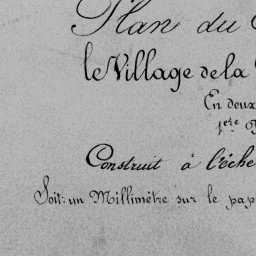 Plan du
le Village de la
En deux
1ère
Construit à l'éche
Soit: un Millimètre sur le pap